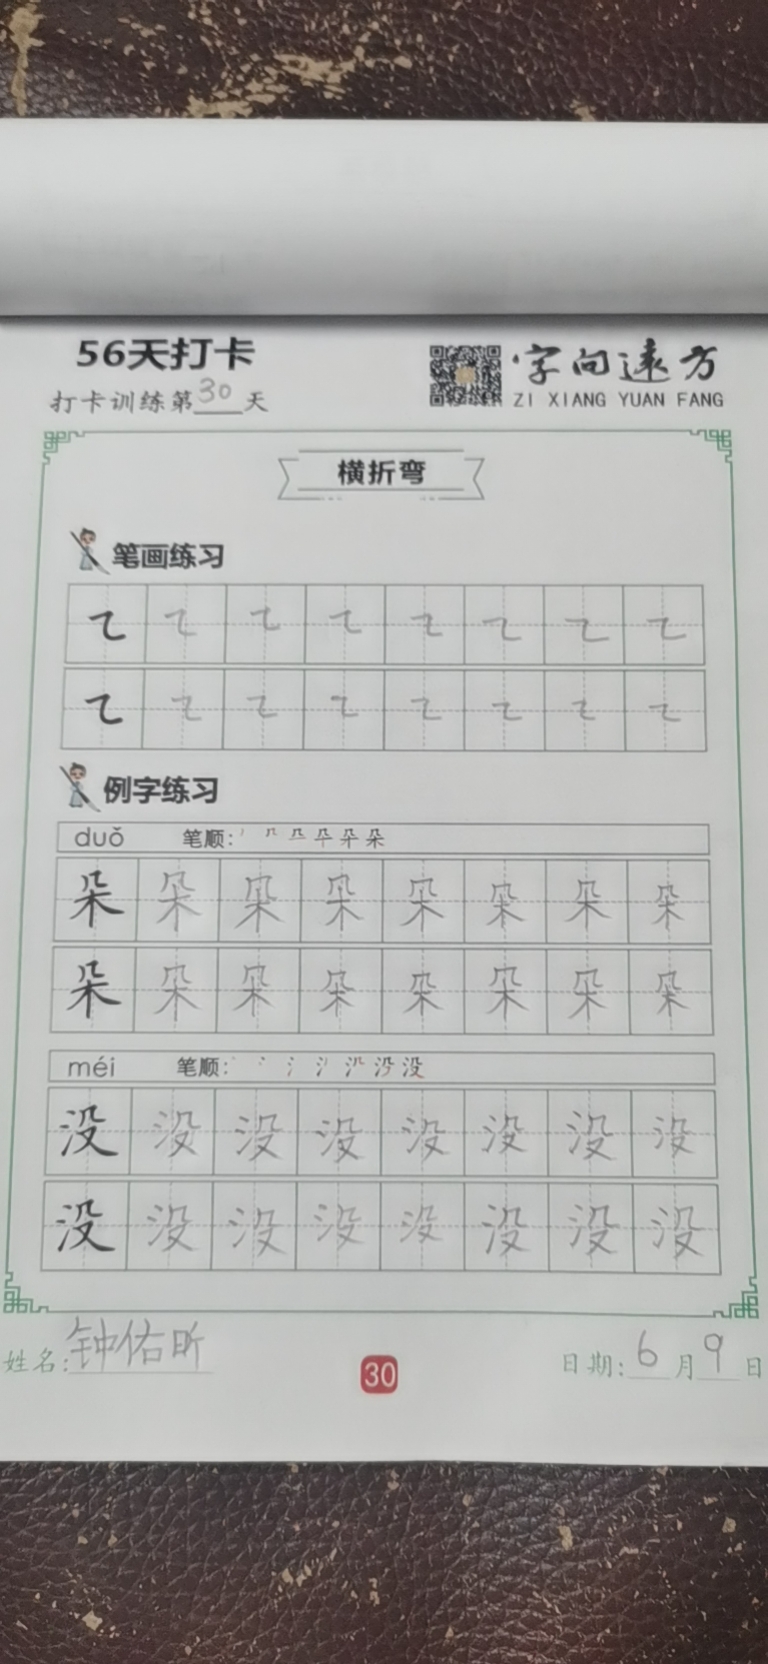 56天打卡
打卡训练第30天
字向远方
ZI XIANG YUAN FANG
横折弯
笔画练习
㇍ ㇍ ㇍ ㇍ ㇍ ㇍ ㇍ ㇍
㇍ ㇍ ㇍ ㇍ ㇍ ㇍ ㇍ ㇍
例字练习
duǒ 笔顺:
朵 朵 朵 朵 朵 朵 朵 朵
朵 朵 朵 朵 朵 朵 朵 朵
méi 笔顺:
没 没 没 没 没 没 没 没
没 没 没 没 没 没 没 没
姓名:钟佑昕
30
日期:6月9日